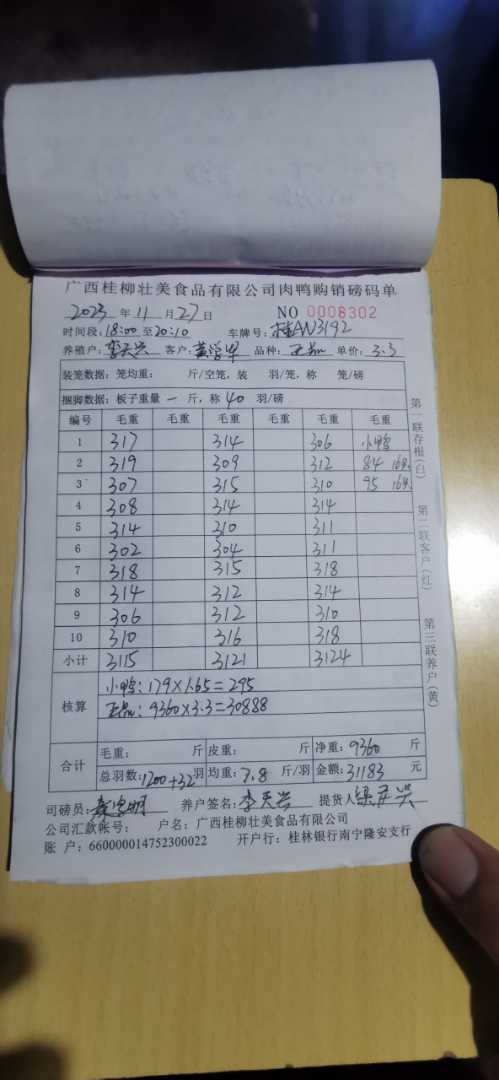 广西桂柳壮美食品有限公司肉鸭购销磅码单
2023年11月27日 NO 0008302
时间段:18:00至20:10 车牌号:桂AN3192
养殖户:李天兴 客户: 品种:正品 单价:3.3
装笼数据:笼均重: 斤/空笼,装 羽/笼,称 笼/磅
捆脚数据:板子重量 一 斤,称 40 羽/磅
编号 毛重 毛重 毛重 毛重 毛重 毛重
1 317 314 306 小鸭
2 319 309 312 84 16只
3 307 315 310 95 16只
4 308 314 314
5 314 310 311
6 302 304 311
7 318 315 318
8 314 312 314
9 306 312 310
10 310 316 318
小计 3115 3121 3124
核算 小鸭:179×1.65=295
正品:9360×3.3=30888
合计 毛重: 斤 皮重: 斤 净重:9360 斤
总羽数:1200+32羽 均重:7.8 斤/羽 金额:31183 元
司磅员: 养户签名:李天兴 提货人
公司汇款帐号: 户名:广西桂柳壮美食品有限公司
账 户:660000014752300022 开户行:桂林银行南宁隆安支行
第一联存根(白)
第二联客户(红)
第三联养户(黄)